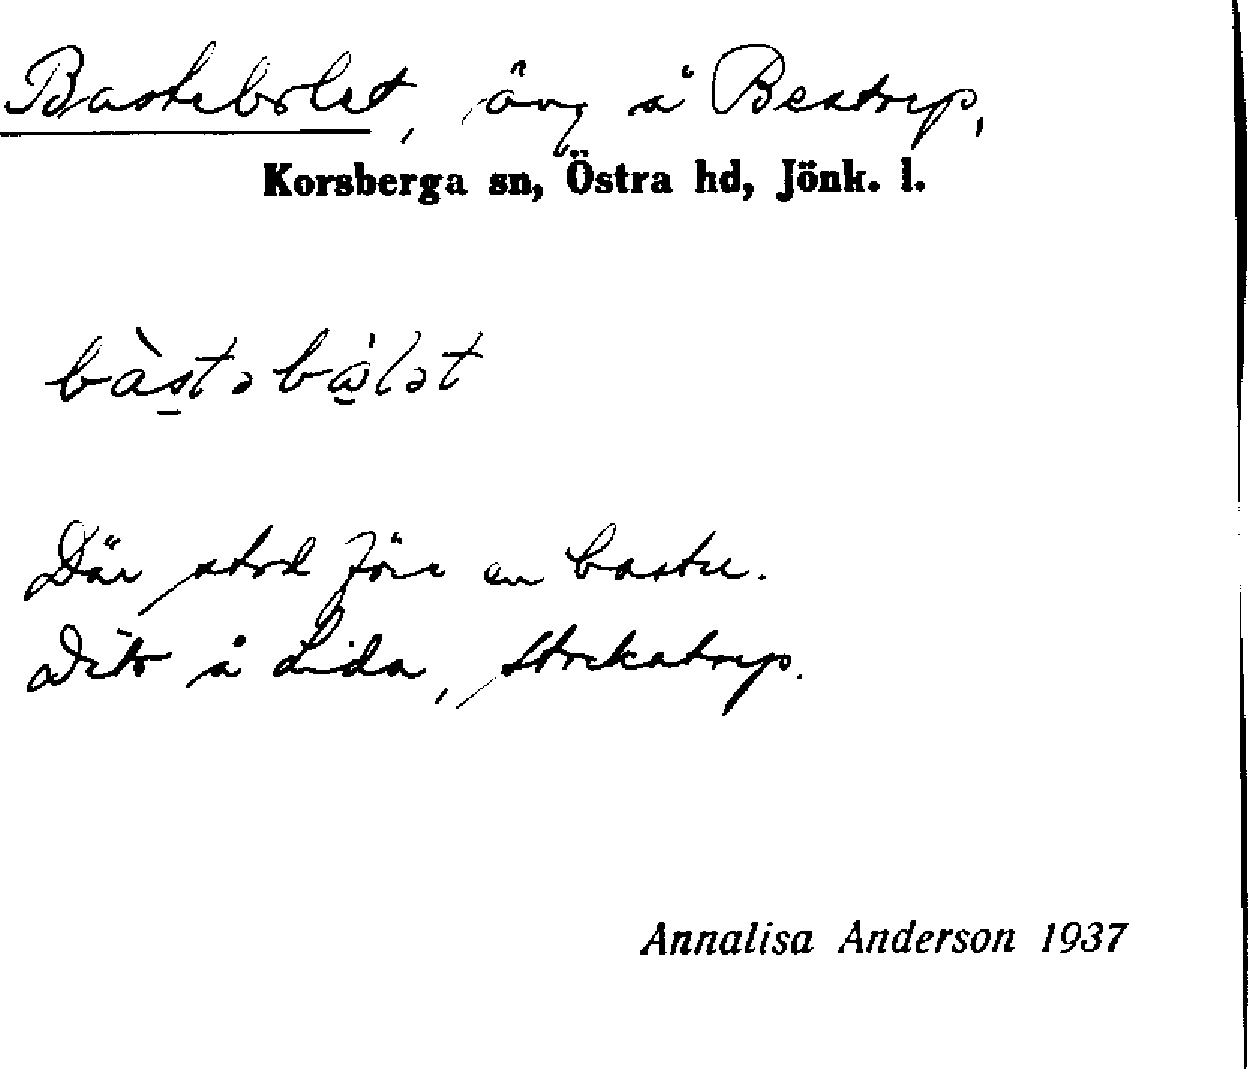 Bastebolet, äng å Bestorp,
Korsberga sn, Östra hd, Jönk. l.
bàstəbòlət
Där stod förr en bastu.
Dito å Lida, Storkatorp.
Annalisa Anderson 1937